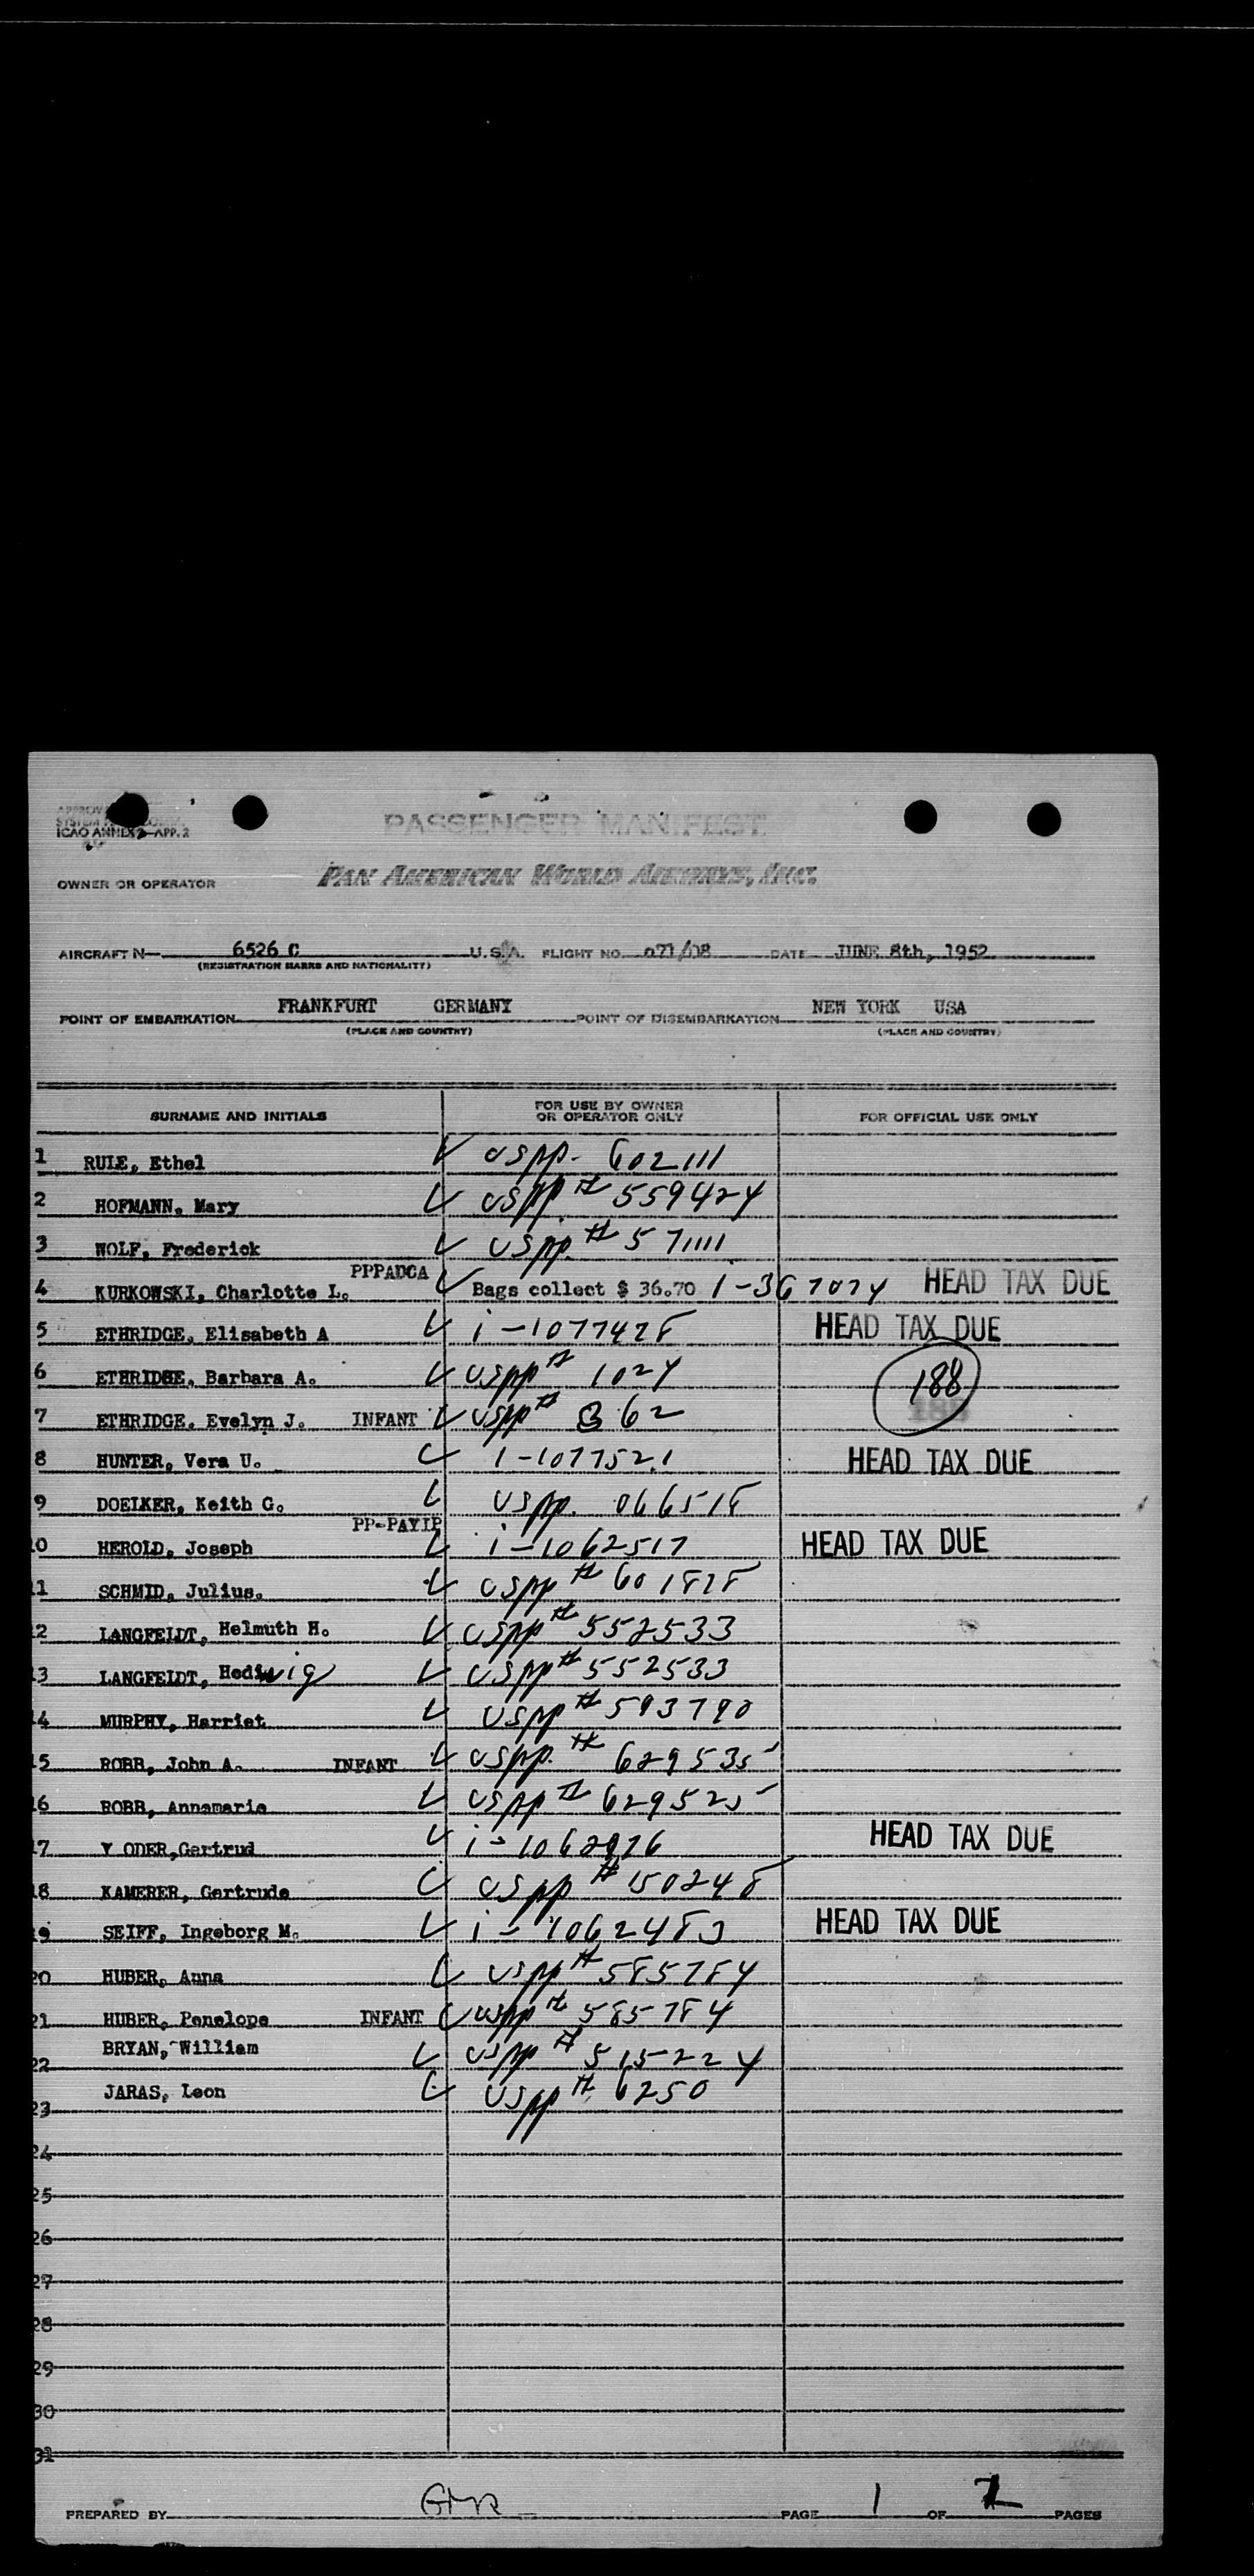 ICAO ANNEX 2—APP. 2
PASSENGER MANIFEST
OWNER OR OPERATOR PAN AMERICAN WORLD AIRWAYS, INC.
AIRCRAFT N— 6526 C U.S.A. FLIGHT NO. 071/08 DATE JUNE 8th, 1952
(REGISTRATION MARKS AND NATIONALITY)
POINT OF EMBARKATION FRANKFURT GERMANY POINT OF DISEMBARKATION NEW YORK USA
(PLACE AND COUNTRY) (PLACE AND COUNTRY)
SURNAME AND INITIALS FOR USE BY OWNER OR OPERATOR ONLY FOR OFFICIAL USE ONLY
1 RULE, Ethel USPP- 602111
2 HOFMANN, Mary USPP # 559424
3 WOLF, Frederick USPP. # 571111
PPPADCA
4 KURKOWSKI, Charlotte L. Bags collect $ 36.70 1-367074 HEAD TAX DUE
5 ETHRIDGE, Elisabeth A i-1077428 HEAD TAX DUE
6 ETHRIDGE, Barbara A. USPP # 1024 188
7 ETHRIDGE, Evelyn J. INFANT USPP # 362
8 HUNTER, Vera U. 1-1077521 HEAD TAX DUE
9 DOELKER, Keith G. USPP. 066518
PP-PAYIP
10 HEROLD, Joseph i-1062517 HEAD TAX DUE
11 SCHMID, Julius. USPP # 601828
12 LANGFELDT, Helmuth H. USPP # 552533
13 LANGFELDT, Hedwig USPP # 552533
14 MURPHY, Harriet USPP # 593790
15 ROBB, John A. INFANT USPP. # 629535
16 ROBB, Annamarie USPP # 629525
17 Y ODER,Gertrud i-1062976 HEAD TAX DUE
18 KAMERER, Gertrude USPP # 150248
19 SEIFF, Ingeborg M. i-1062483 HEAD TAX DUE
20 HUBER, Anna USPP # 585784
21 HUBER, Penelope INFANT USPP # 585784
22 BRYAN, William USPP # 515224
23 JARAS, Leon USPP # 6250
24
25
26
27
28
29
30
31
PREPARED BY GMR PAGE 1 OF 2 PAGES